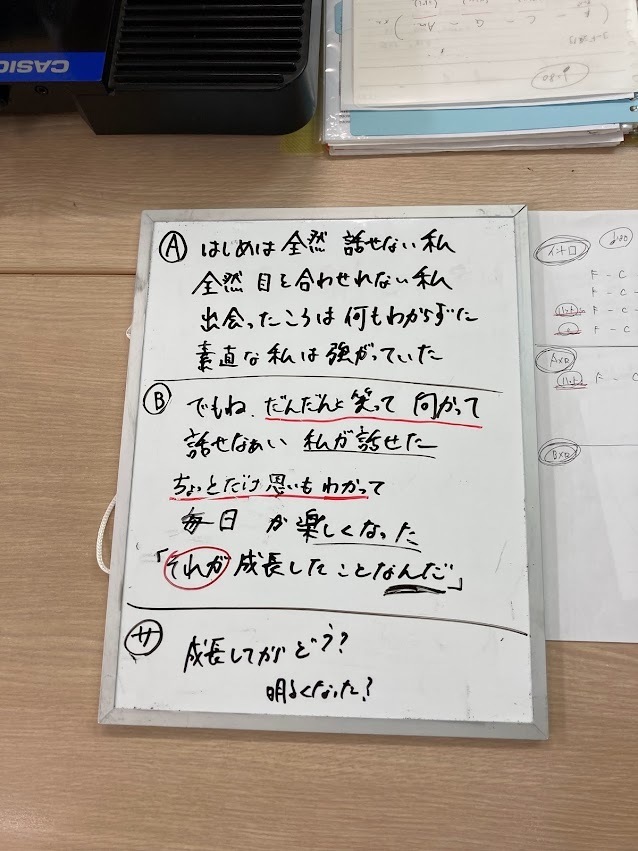 CASIO
Ⓐ はじめは 全然 話せない 私
全然 目を合わせれない 私
出会ったころは 何もわからずた
素直な 私は 強がっていた
Ⓑ でもね、だんだんと 笑って 向かって
話せなぁい 私が 話せた
ちょっとだけ 思いも わかって
毎日 が 楽しくなった
「それが 成長したことなんだ」
サ 成長してがどう?
明るくなった?
イントロ
F - C
F - C -
F - C -
Aメロ
F - C
Bメロ